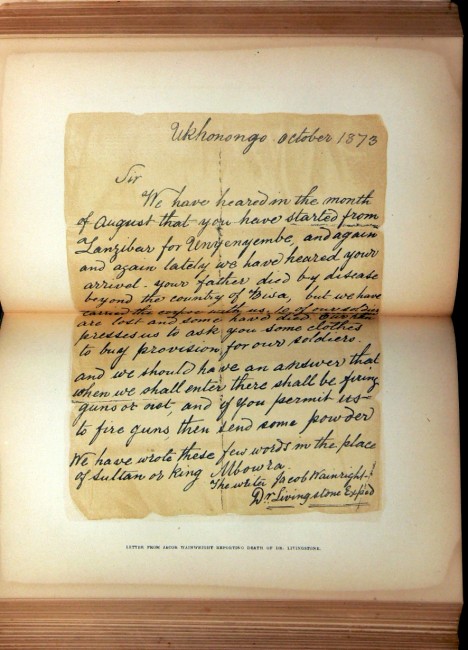 Ukhonongo October 1873
Sir
We have heared in the month
of August that you have started from
Zanzibar for Unyenyembe, and again
and again lately we have heared your
arrival - your father died by disease
beyond the country of Bisa, but we have
carried the corpse with us. 10 of our soldiers
are lost and some have died. Our hunger
presses us to ask you some clothes
to buy provision for our soldiers.
and we should have an answer that
when we shall enter there shall be firing
guns or not, and if you permit us
to fire guns, then send some powder
We have wrote these few words in the place
of Sultan or King Mbowra.
The writer Jacob Wainwright
Dr. Livingstone Exped
LETTER FROM JACOB WAINWRIGHT REPORTING DEATH OF DR. LIVINGSTONE.